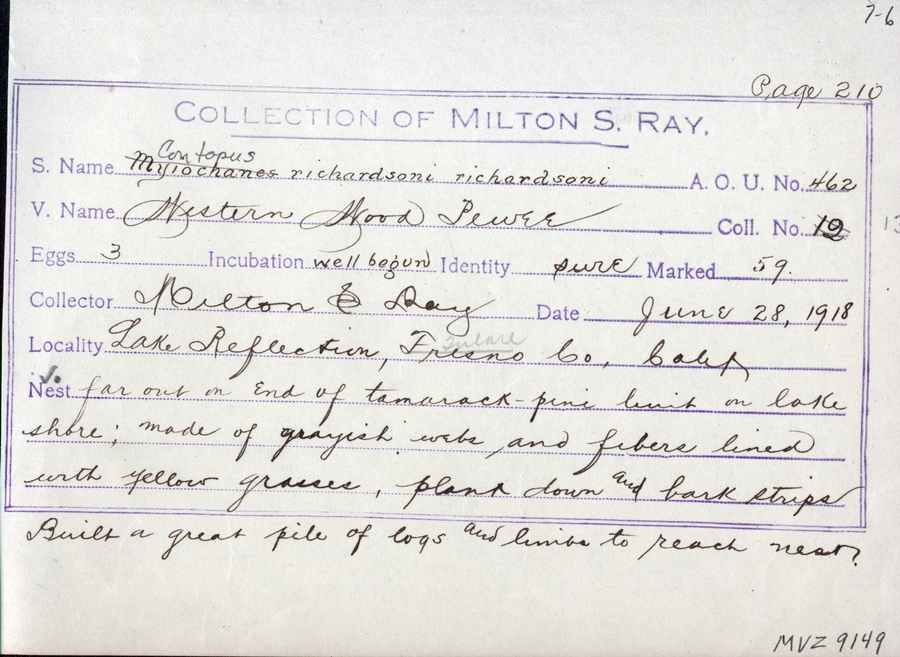 7-6
Page 210
COLLECTION OF MILTON S. RAY.
Contopus
S. Name Myiochanes richardsoni richardsoni A. O. U. No. 462
V. Name Western Wood Pewee Coll. No. 12 13
Eggs 3 Incubation well begun Identity sure Marked 59.
Collector Milton S Ray Date June 28, 1918
Tulare
Locality Lake Reflection, Fresno Co, Calif
Nest far out on end of tamarack-pine limb on lake
shore; made of grayish webs and fibers lined
with yellow grasses, plant down and bark strips
Built a great pile of logs and limbs to reach nest.
MVZ 9149